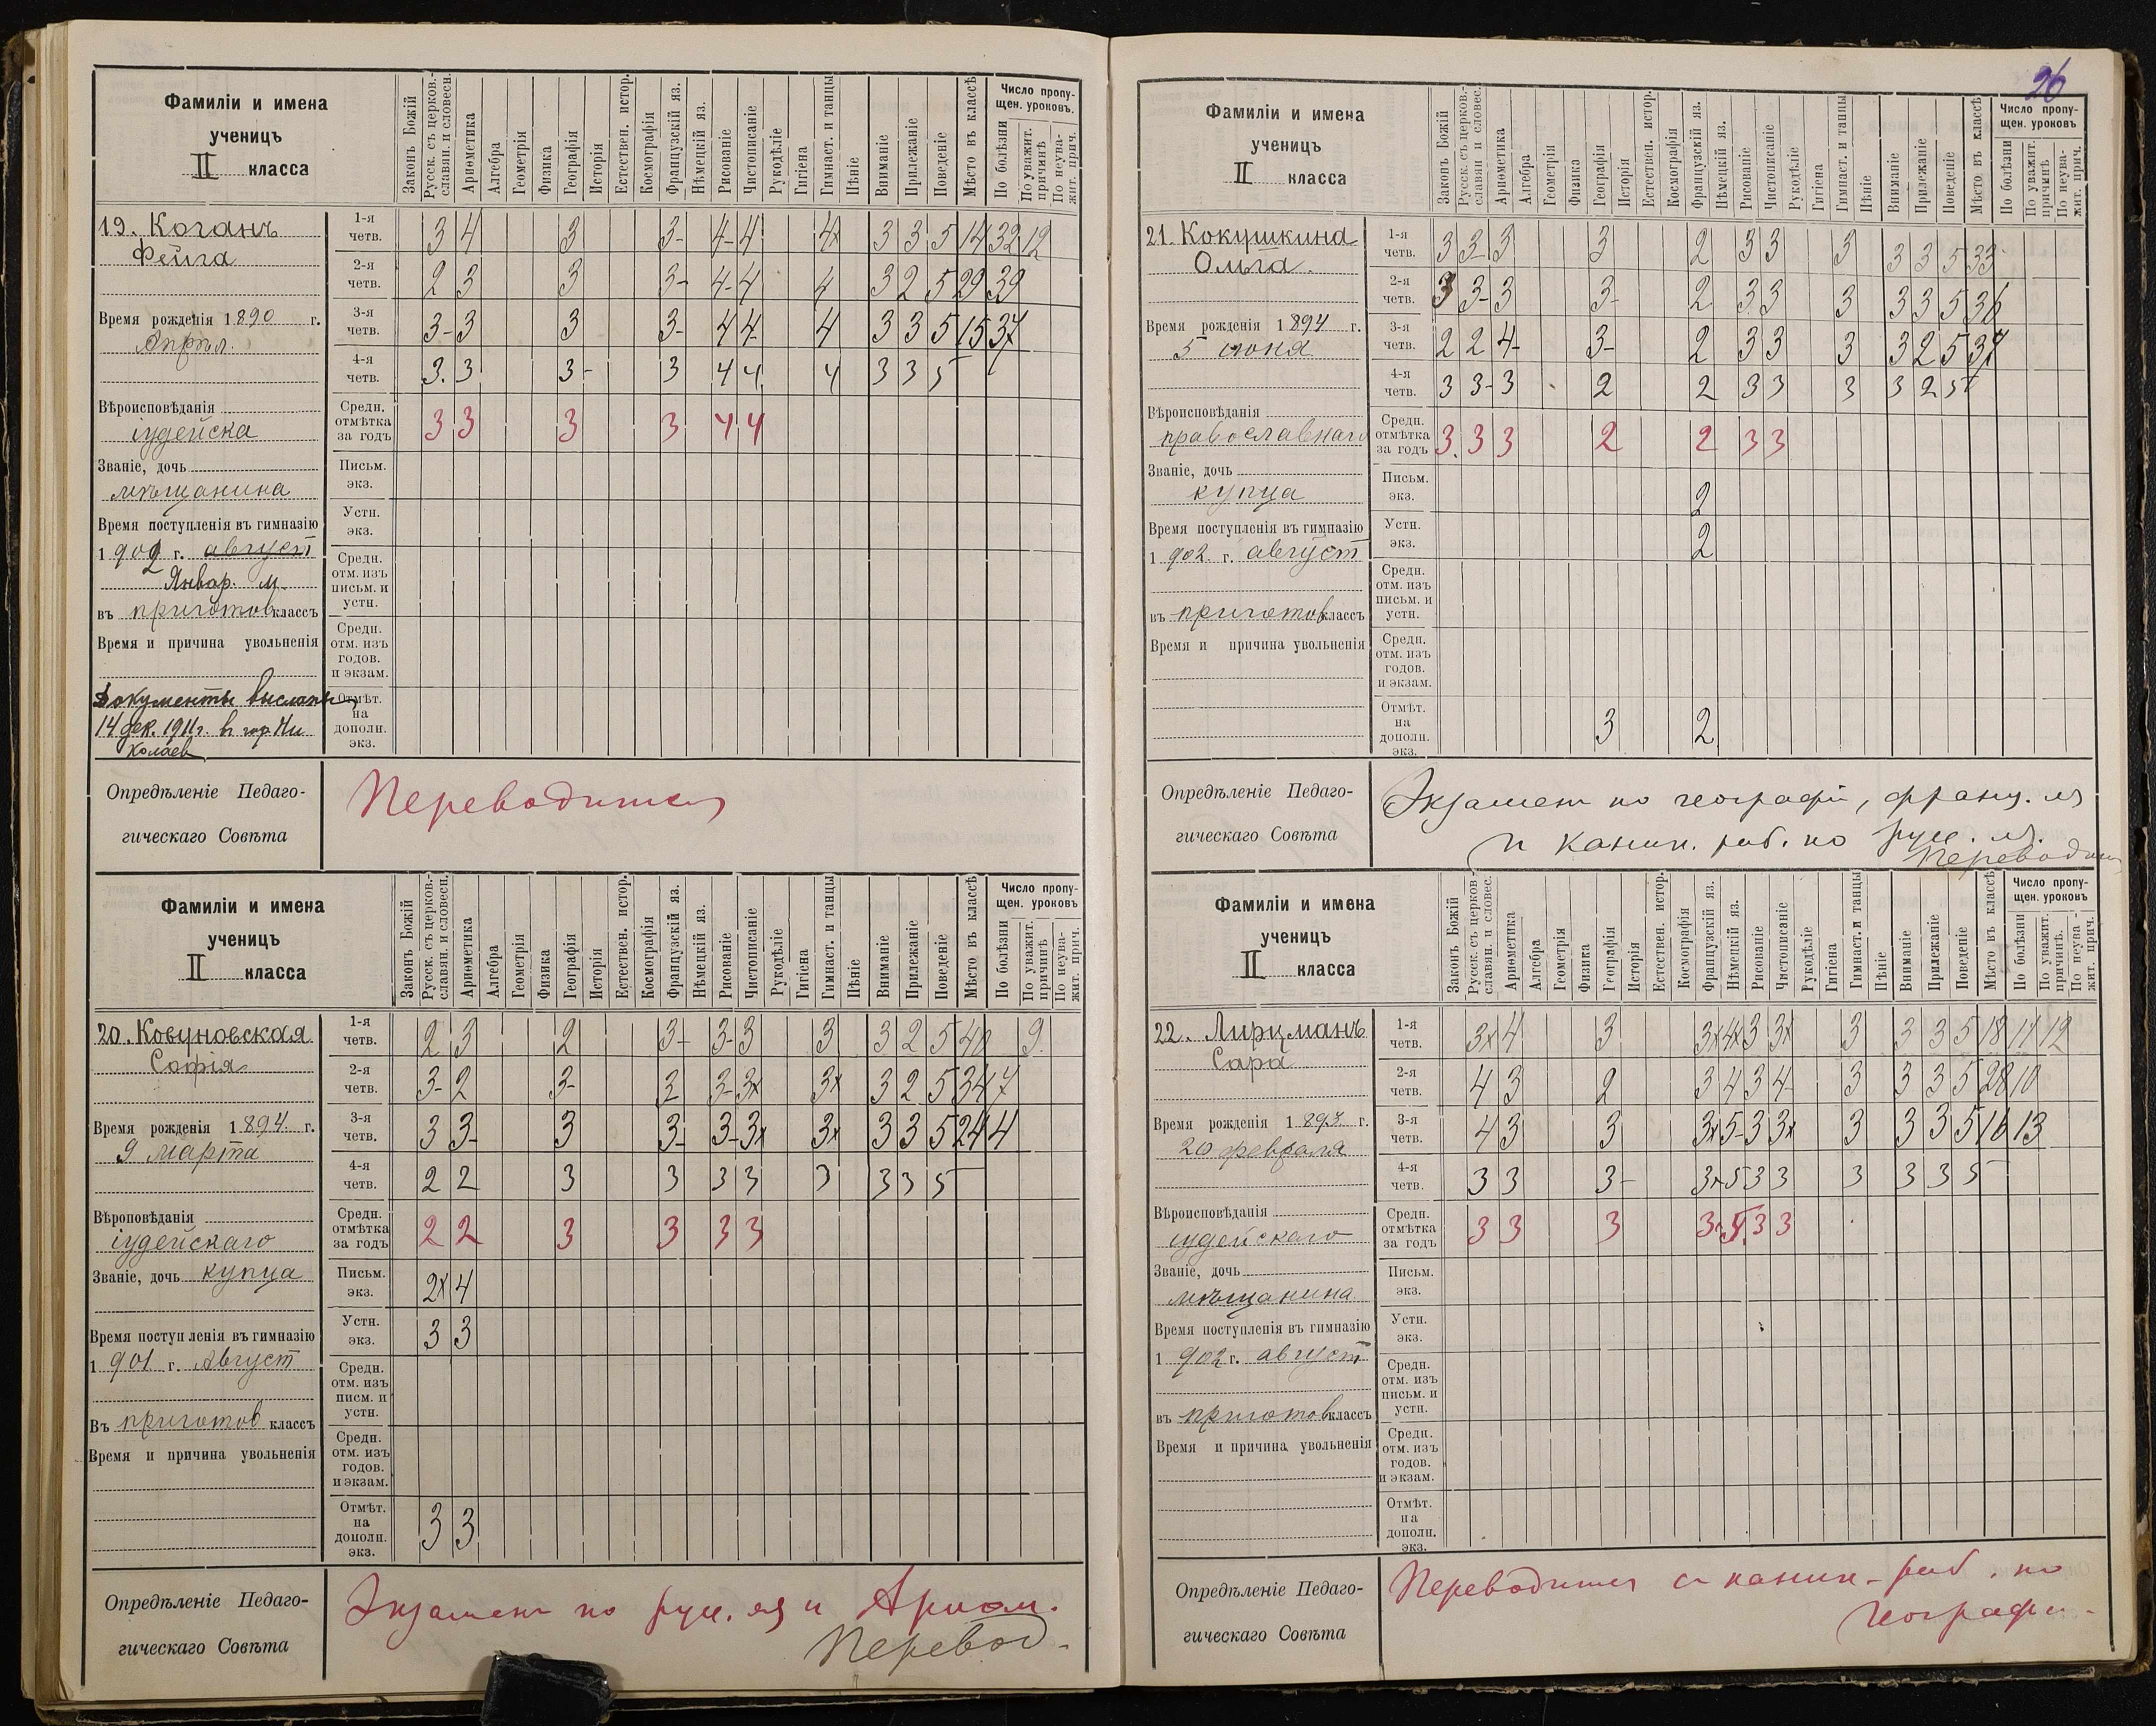 26
Фамиліи и имена
ученицъ
II класса
Законъ Божій
Русск. съ церков.-
славян. и словесн.
Ариѳметика
Алгебра
Геометрія
Физика
Географія
Исторія
Естествен. истор.
Космографія
Французскій яз.
Нѣмецкій яз.
Рисованіе
Чистописаніе
Рукодѣліе
Гигіена
Гимнаст. и танцы
Пѣніе
Вниманіе
Прилежаніе
Поведеніе
Мѣсто въ классѣ
Число пропу-
щен. уроковъ.
По болѣзни
По уважит.
причинѣ
По неува-
жит. прич.
19. Коганъ
Фейга
Время рожденія 1890 г.
Апрѣл.
Вѣроисповѣданія
іудейска
Званіе, дочь
мѣщанина
Время поступленія въ гимназію
1902 г. август
Январ. м.
въ приготов классъ
Время и причина увольненія
Документы высланы
14 дек. 1911 г. в гор. Ни
колаев
1-я четв. 3 4 3 3- 4- 4 4x 3 3 5 14 32 12
2-я четв. 2 3 3 3- 4- 4 4 3 2 5 29 39
3-я четв. 3- 3 3 3- 4 4 4 3 3 5 15 37
4-я четв. 3. 3 3- 3 4 4 4 3 3 5
Средн. отмѣтка за годъ 3 3 3 3 4 4
Письм. экз.
Устн. экз.
Средн. отм. изъ письм. и устн.
Средн. отм. изъ годов. и экзам.
Отмѣт. на дополн. экз.
Опредѣленіе Педаго-
гическаго Совѣта
Переводится
Фамиліи и имена
ученицъ
II класса
Законъ Божій
Русск. съ церков.-
славян. и словесн.
Ариѳметика
Алгебра
Геометрія
Физика
Географія
Исторія
Естествен. истор.
Космографія
Французскій яз.
Нѣмецкій яз.
Рисованіе
Чистописаніе
Рукодѣліе
Гигіена
Гимнаст. и танцы
Пѣніе
Вниманіе
Прилежаніе
Поведеніе
Мѣсто въ классѣ
Число пропу-
щен. уроковъ
По болѣзни
По уважит.
причинѣ
По неува-
жит. прич.
20. Ковуновская
Софія
Время рожденія 1894 г.
9 марта
Вѣроповѣданія
іудейскаго
Званіе, дочь купца
Время поступленія въ гимназію
1901 г. Август
Въ приготов классъ
Время и причина увольненія
1-я четв. 2 3 2 3- 3- 3 3 3 2 5 40 9
2-я четв. 3- 2 3- 3 3- 3x 3x 3 2 5 34 7
3-я четв. 3 3- 3 3- 3- 3x 3x 3 3 5 24 4
4-я четв. 2 2 3 3 3 3 3 3 3 5
Средн. отмѣтка за годъ 2 2 3 3 3 3
Письм. экз. 2x 4
Устн. экз. 3 3
Средн. отм. изъ писм. и устн.
Средн. отм. изъ годов. и экзам.
Отмѣт. на дополн. экз. 3 3
Опредѣленіе Педаго-
гическаго Совѣта
Экзамен по рус. яз и Ариѳм.
Перевод-
Фамиліи и имена
ученицъ
II класса
Законъ Божій
Русск. съ церков.-
славян и словес.
Ариѳметика
Алгебра
Геометрія
Физика
Географія
Исторія
Естествен. истор.
Космографія
Французскій яз.
Нѣмецкій яз.
Рисованіе
Чистописаніе
Рукодѣліе
Гигіена
Гимнаст. и танцы
Пѣніе
Вниманіе
Прилежаніе
Поведеніе
Мѣсто въ классѣ
Число пропу-
щен. уроковъ
По болѣзни
По уважит.
причинѣ
По неува-
жит. прич.
21. Кокушкина
Ольга.
Время рожденія 1894 г.
5 июня
Вѣроисповѣданія
православнаго
Званіе, дочь
купца
Время поступленія въ гимназію
1902. г. август
въ приготов классъ
Время и причина увольненія
1-я четв. 3 3- 3 3 2 3 3 3 3 3 5 33
2-я четв. 3 3- 3 3- 2 3 3 3 3 3 5 36
3-я четв. 2 2 4- 3- 2 3 3 3 3 2 5 37
4-я четв. 3 3- 3 2 2 3 3 3 3 2 5
Средн. отмѣтка за годъ 3. 3 3 2 2 3 3
Письм. экз. 2
Устн. экз. 2
Средн. отм. изъ письм. и устн.
Средн. отм. изъ годов. и экзам.
Отмѣт. на дополн. экз. 3 2
Опредѣленіе Педаго-
гическаго Совѣта
Экзамен по географіи, франц. яз
и каник. раб. по рус. яз.
Переводится
Фамиліи и имена
ученицъ
II класса
Законъ Божій
Русск. съ церков
славян. и словес.
Ариѳметика
Алгебра
Геометрія
Физика
Географія
Исторія
Естествен. истор.
Космографія
Французскій яз.
Нѣмецкій яз.
Рисованіе
Чистописаніе
Рукодѣліе
Гигіена
Гимнаст. и танцы
Пѣніе
Вниманіе
Прилежаніе
Поведеніе
Мѣсто въ классѣ
Число пропу-
щен. уроковъ
По болѣзни
По уважит.
причинѣ.
По неува
жит. прич.
22. Лирцманъ
Сара
Время рожденія 1893. г.
20 февраля
Вѣроисповѣданія
іудейскаго
Званіе, дочь
мѣщанина
Время поступленія въ гимназію
1902 г. август
въ приготов классъ
Время и причина увольненія
1-я четв. 3x 4 3 3x 4x 3 3x 3 3 3 5 18 11 12
2-я четв. 4 3 2 3 4 3 4- 3 3 3 5 28 10
3-я четв. 4 3 3 3x 5- 3 3x 3 3 3 5 16 13
4-я четв. 3 3 3- 3x 5 3 3 3 3 3 5
Средн. отмѣтка за годъ 3 3 3 3 5. 3 3
Письм. экз.
Устн. экз.
Средн. отм. изъ письм. и устн.
Средн. отм. изъ годов. и экзам.
Отмѣт. на дополн. экз.
Опредѣленіе Педаго-
гическаго Совѣта
Переводится с каник- раб. по
географи-